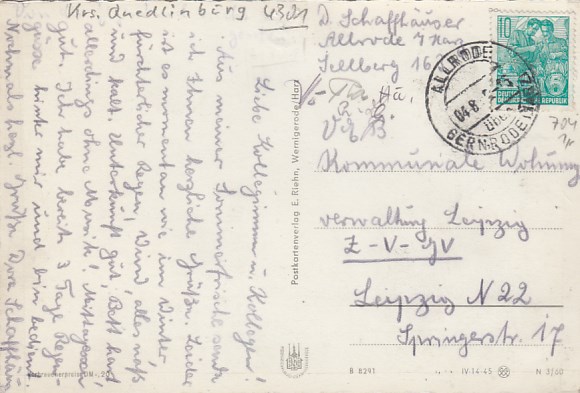 Krs. Quedlinburg 4301
D. Schaffhäuser
Allrode / Harz
Sellberg 16
10
DEUTSCHE DEMOKRATISCHE REPUBLIK
ALLRODE
04.8.
über
GERNRODE
Kommunale Wohnung
verwaltung Leipzig
Z-V-GV
Leipzig N22
Springerstr. 17
Liebe Kolleginnen u. Kollegen!
Aus meiner Sommerfrische sende
ich Ihnen herzliche Grüße. Leider
ist es momentan wie im Winter
fürchterlicher Regen, Wind, alles naß
und kalt. Unterkunft gut, Bett hart
allerdings ohne Musik! Mittagessen
gut. Ich habe bereits 3 Tage Regen-
güsse hinter mir und bin bedient
Nochmals herzl. Grüße Dora Schaffhäuser
Postkartenverlag E. Riehn, Wernigerode/Harz
Verbraucherpreis DM -,20
B 8291
IV-14-45
N 3/60